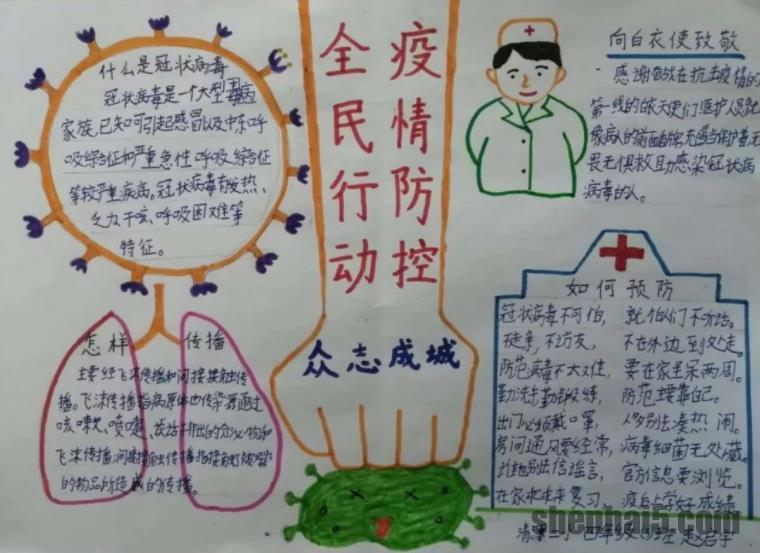 什么是冠状病毒
冠状病毒是一个大型病毒
家族,已知可引起感冒以及中东呼
吸综合征和严重急性呼吸综合征
等较严重疾病。冠状病毒有发热、
乏力干咳、呼吸困难等
特征。
疫情防控
全民行动
众志成城
向白衣使致敬
感谢奋战在抗击疫情的
第一线的
畏无惧救助感染冠状病
病毒的人。
怎样传播
主要经飞沫传播和间接接触传
播。飞沫传播指病原体由传染源通过
咳嗽、喷嚏、
飞沫传播,间接接触传播指接触
的物品所造成的传播。
如何预防
冠状病毒不可怕，就怕们不听话。
不走亲，不访友，不在外边到处走。
防范病毒不太难，要在家里呆两周。
勤洗手勤锻练，防范主要靠自己。
出门必须戴口罩，人多别去凑热闹。
房间通风要经常，病毒细菌无处藏。
别信谣言，官方信息要浏览。
在家 复习，疫后上学好成绩
四年级
shenhai5.com